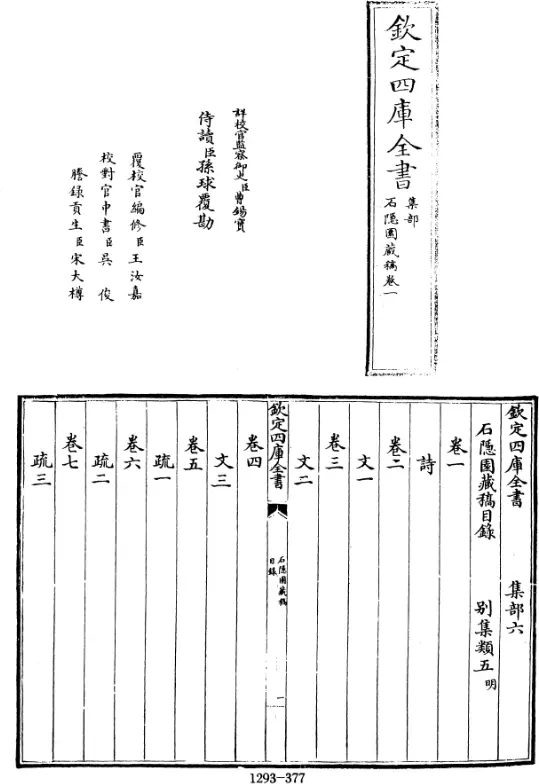 欽定四庫全書
集部
石隱園藏稿卷一
詳校官監察御史臣曹錫寶
侍讀臣孫球覆勘
覆校官編修臣王汝嘉
校對官中書臣吳俊
謄錄貢生臣宋大樽
欽定四庫全書 集部六
石隱園藏稿目錄 別集類五明
卷一
詩
卷二
文一
卷三
文二
欽定四庫全書
石隱園藏稿
目錄
一
卷四
文三
卷五
疏一
卷六
疏二
卷七
疏三
1293-377